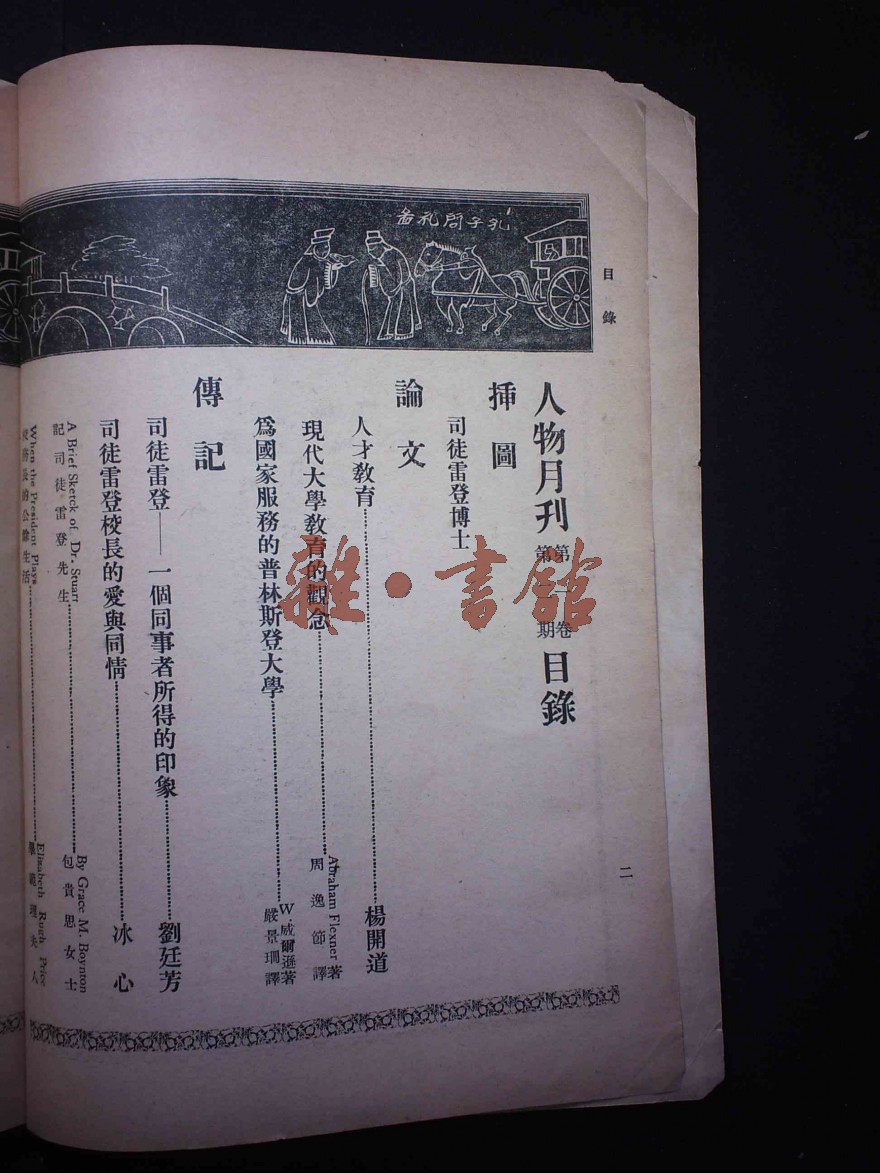 孔子問礼老
目錄
人物月刊 第一卷 第 期 目錄
插圖
司徒雷登博士
論文
人才敎育 楊開道
現代大學敎育的觀念 Abraham Flexner著 周逸節譯
爲國家服務的普林斯登大學 W.威爾遜著 嚴景珊譯
傳記
司徒雷登——一個同事者所得的印象 劉廷芳
司徒雷登校長的愛與同情 冰心
A Brief Skerck of. Dr. Stuarr By Grace M. Boynton
記司徒雷登先生 包貴思女士
When the President Plays Elisabeth Rugh Price
校務長的公餘生活 理夫人
二
雜·書館